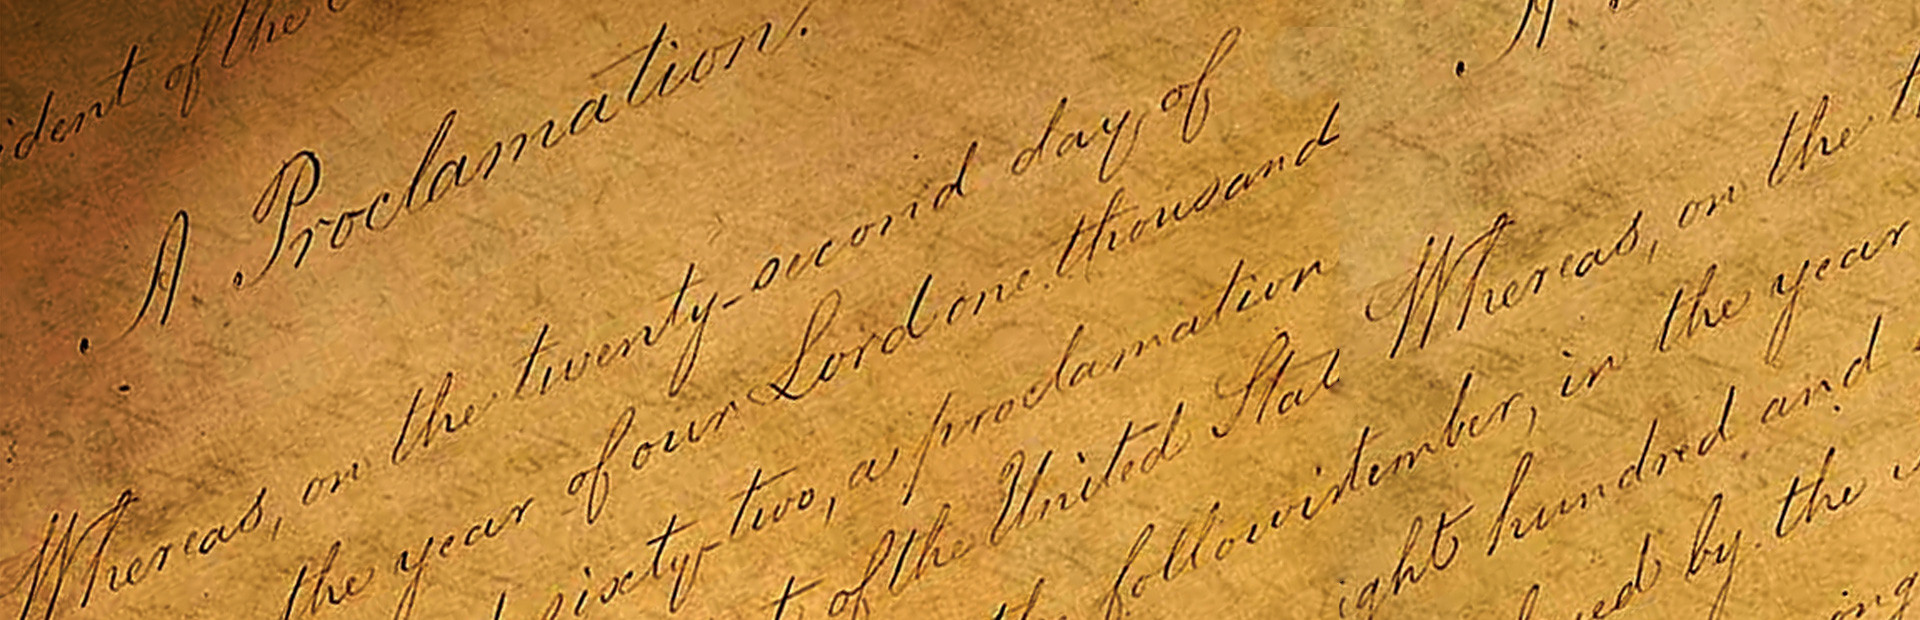 ident of the
A Proclamation.
Whereas, on the twenty-second day of
the year of our Lord one thousand
sixty two, a proclamation
t of the United Stat
the followi
A
Whereas, on the t
tember, in the year
ight hundred and
by the